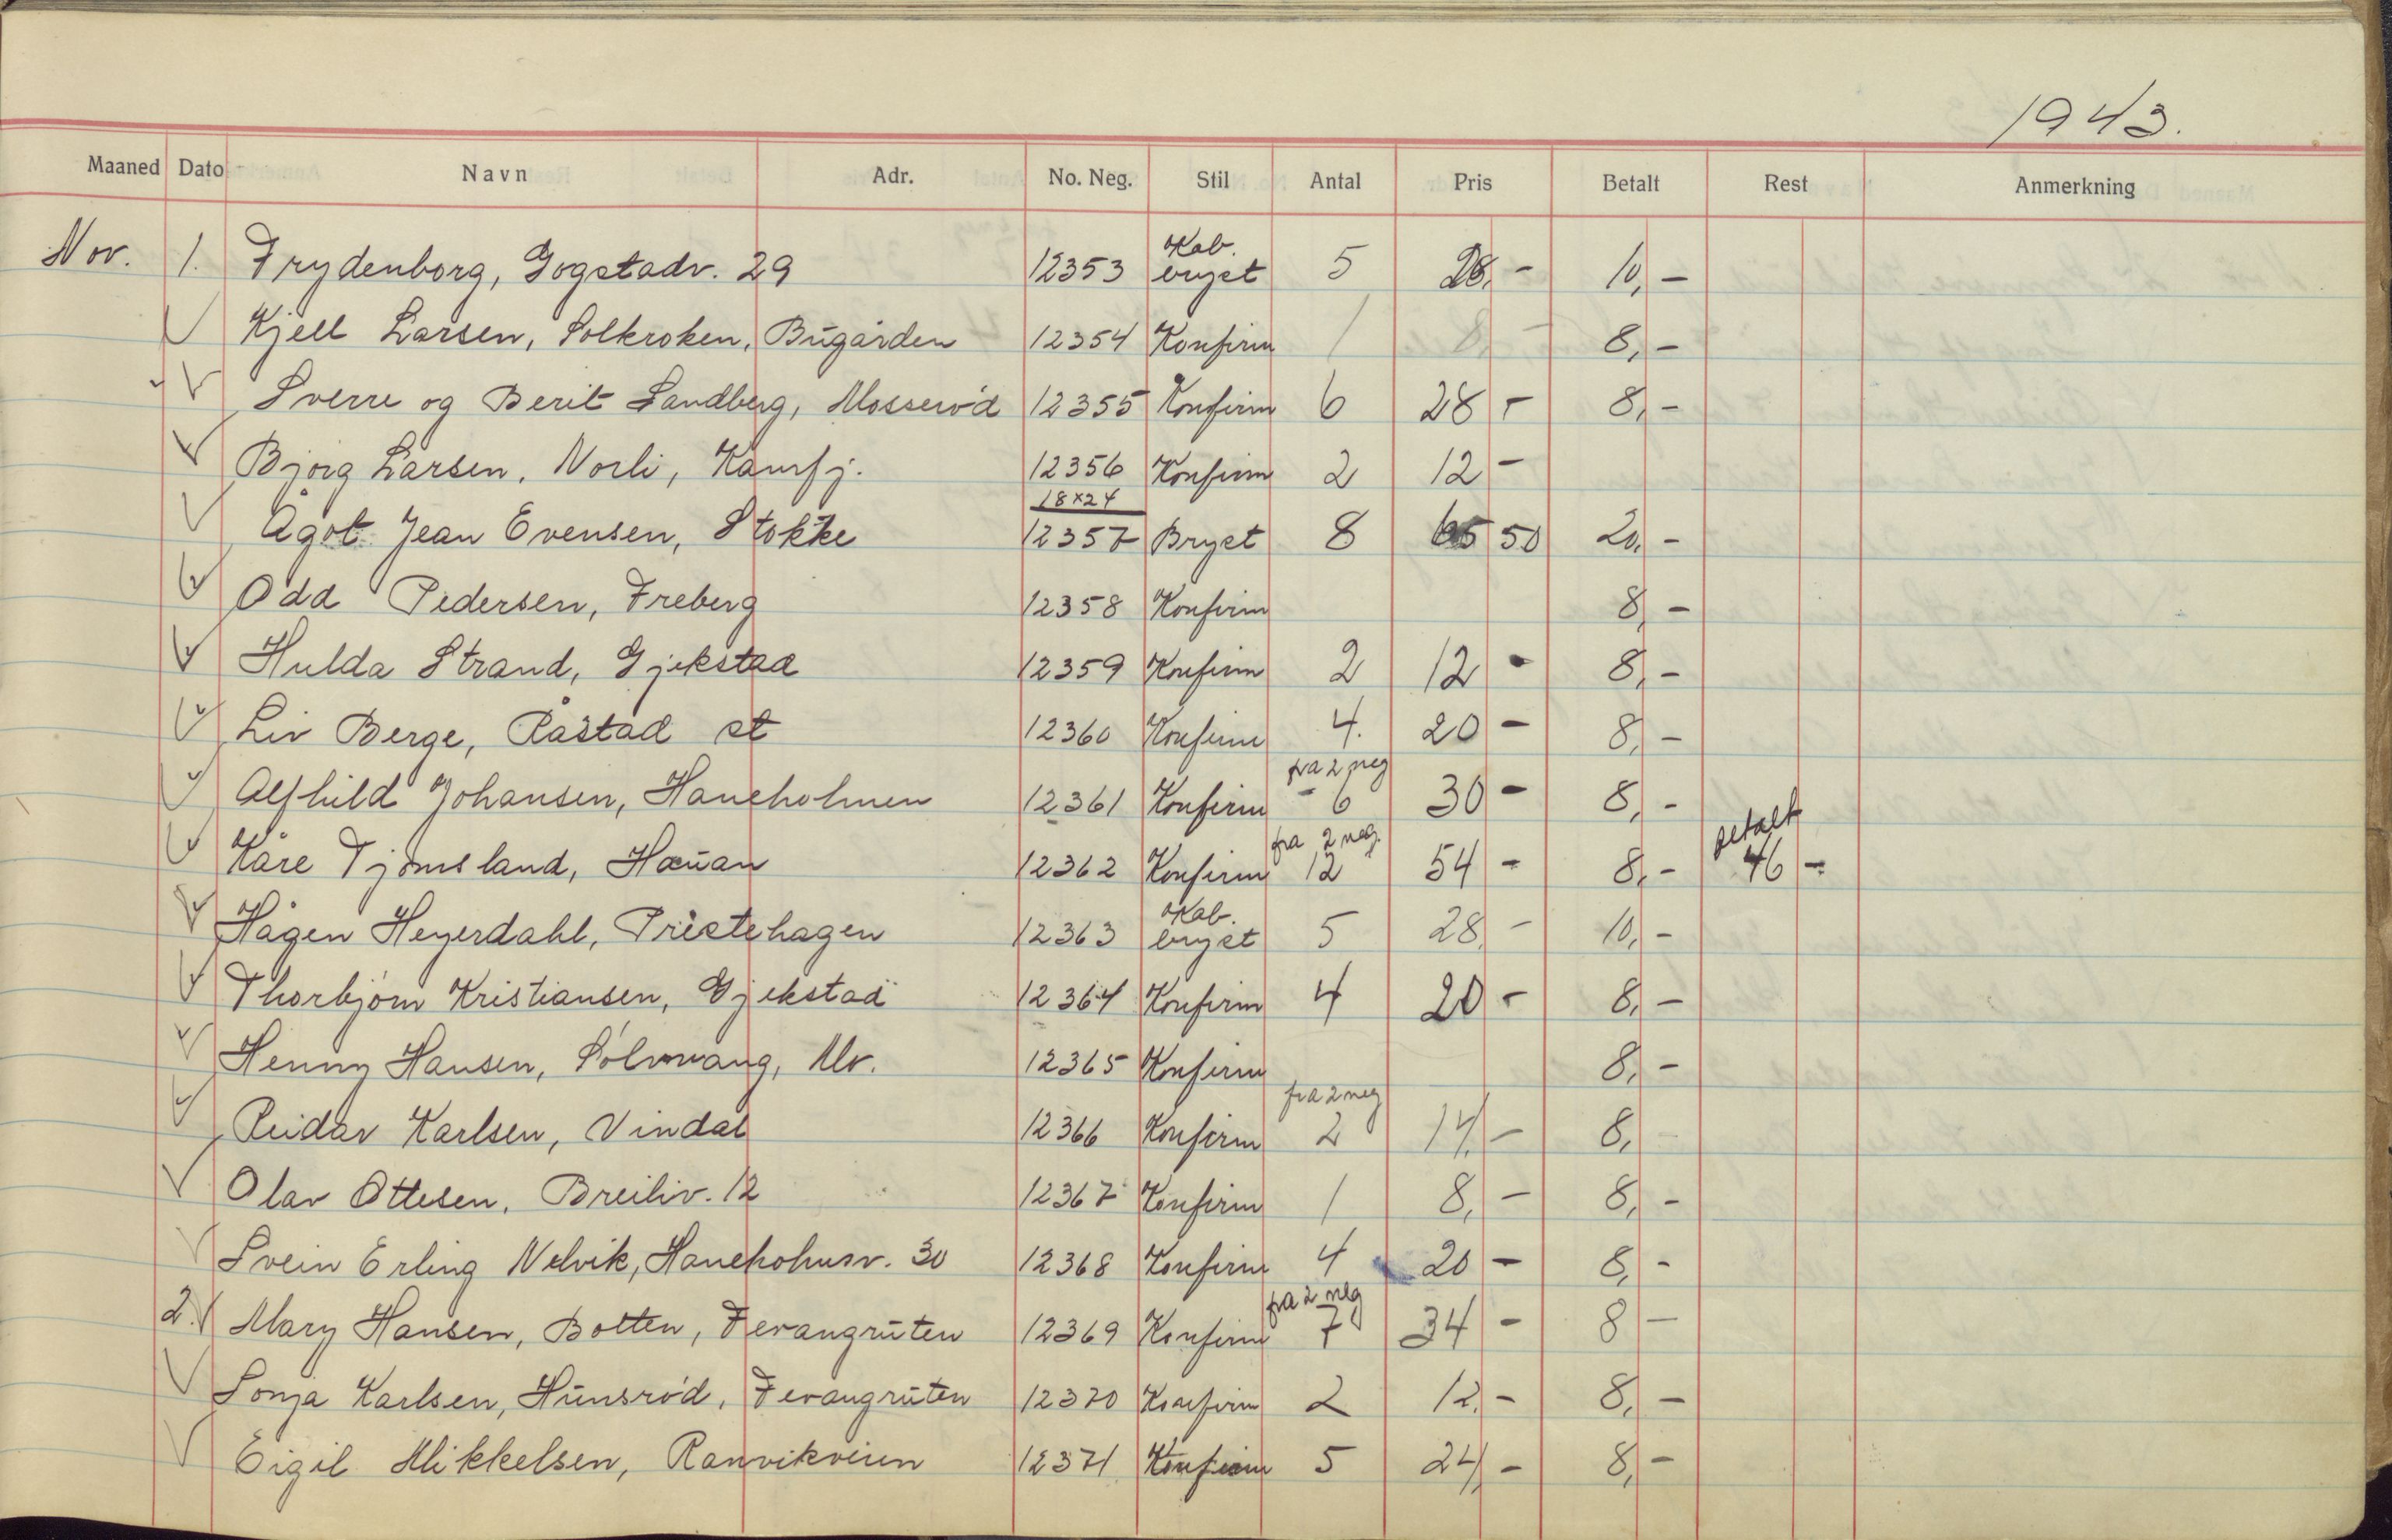 1943.
Maaned Dato Navn Adr. No. Neg. Stil Antal Pris Betalt Rest Anmerkning
Nov. 1. Frydenborg, Gogstadv. 29 12353 Kab. bryst 5 28,- 10,-
Kjell Larsen, Solkroken, Bugården 12354 Konfirm 1 8,- 8,-
Sverre og Berit Sandberg, Mosserød 12355 Konfirm 6 28 - 8,-
Bjørg Larsen, Norli, Kamfj. 12356 Konfirm 2 12 -
Ågot Jean Evensen, Stokke 18x24 12357 Bryst 8 65 50 20,-
Odd Pedersen, Freberg 12358 Konfirm 8,-
Hulda Strand, Gjekstad 12359 Konfirm 2 12 - 8,-
Liv Berge, Råstad st 12360 Konfirm 4. 20 - 8,-
Alfhild Johansen, Haneholmen 12361 Konfirm fra 2 neg 6 30 - 8,-
Kåre Tjømsland, Haugan 12362 Konfirm fra 2 neg. 12 54 - 8,- betalt 46 -
Hågen Heyerdahl, Prestehagen 12363 Kab. bryst 5 28,- 10,-
Thorbjørn Kristiansen, Gjekstad 12364 Konfirm 4 20 - 8,-
Henny Hansen, Solvang, Mv. 12365 Konfirm 8,-
Reidar Karlsen, Vindal 12366 Konfirm fra 2 neg 2 14,- 8,-
Olav Ottesen, Breiliv. 12 12367 Konfirm 1 8,- 8,-
Svein Erling Nelvik, Haneholmsv. 30 12368 Konfirm 4 20 - 8,-
2. Mary Hansen, Botten, Fevangruten 12369 Konfirm fra 2 neg 7 34 - 8 -
Sonja Karlsen, Hunsrød, Fevangruten 12370 Konfirm 2 12,- 8,-
Eigil Mikkelsen, Ranvikveien 12371 Konfirm 5 24,- 8,-